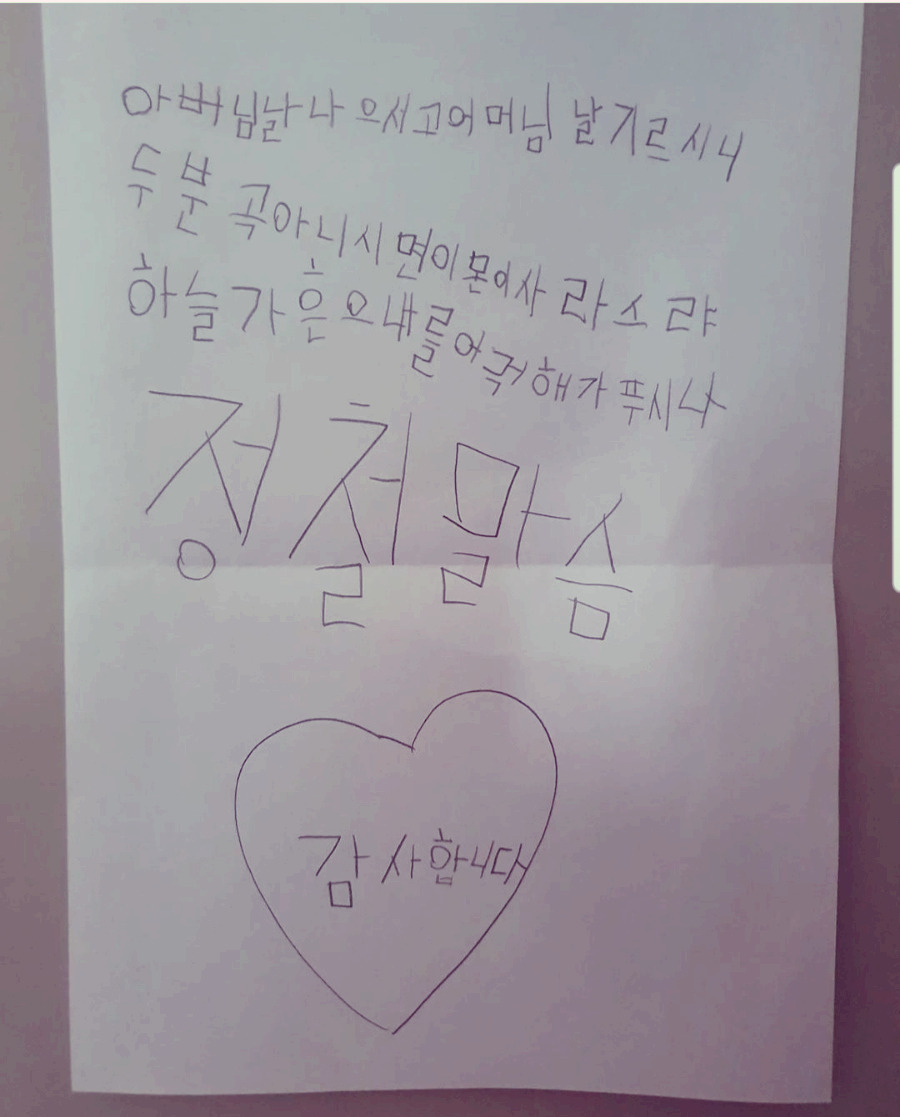 아버님날나으서고어머님 날기르시니
두분 곡아니시면이몬이사라스랴
하늘가흔으내를어귁해가푸시나
정철말슴
감사합니다